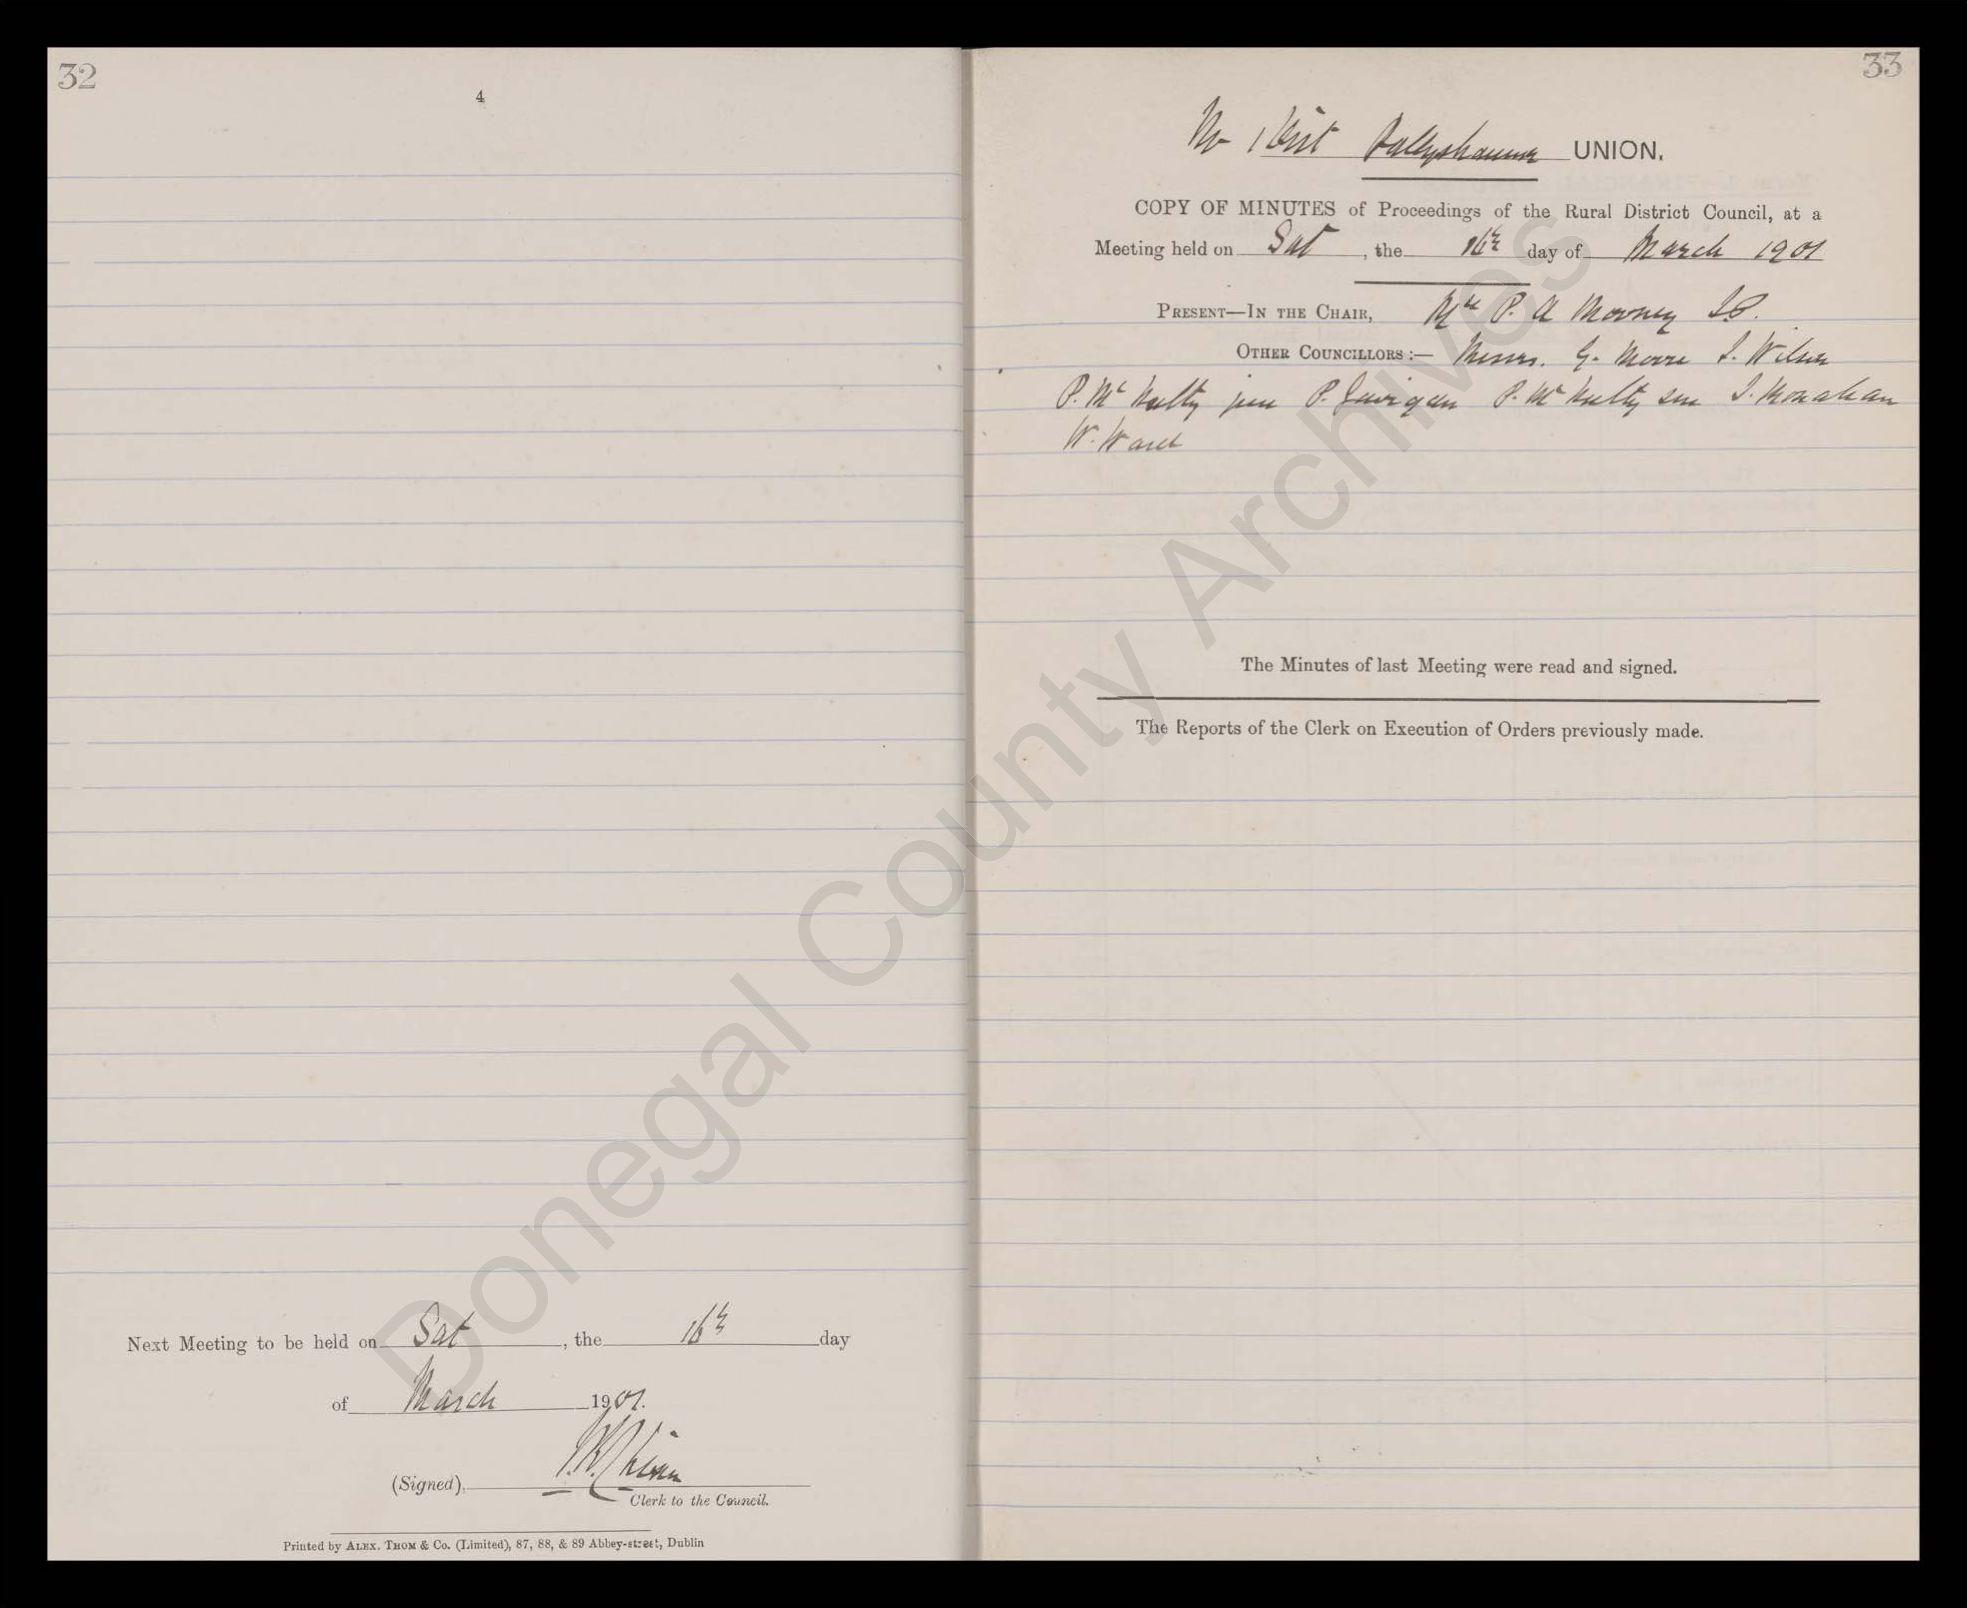 32
4
Next Meeting to be held on Sat, the 16th day
of March 1901.
(Signed),
Clerk to the Council.
Printed by ALEX. THOM & Co. (Limited), 87, 88, & 89 Abbey-street, Dublin
33
No 1 Dist Ballyshannon UNION.
COPY OF MINUTES of Proceedings of the Rural District Council, at a
Meeting held on Sat, the 16th day of March 1901
PRESENT—IN THE CHAIR, Mr P. A Mooney J.P.
OTHER COUNCILLORS:— Messrs. G. Moore J. Wilson
P. McNulty jun P. P. McNulty sen J. Monahan
W. Ward
The Minutes of last Meeting were read and signed.
The Reports of the Clerk on Execution of Orders previously made.
Donegal County Archives